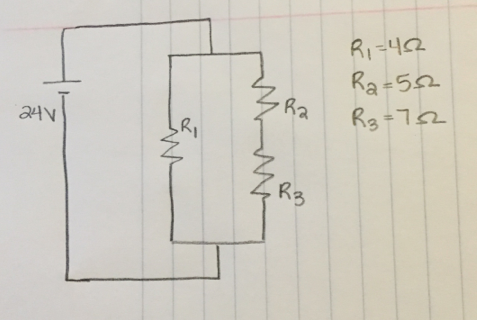 24V
R₁
R₂
R₃
R₁=4Ω
R₂=5Ω
R₃=7Ω